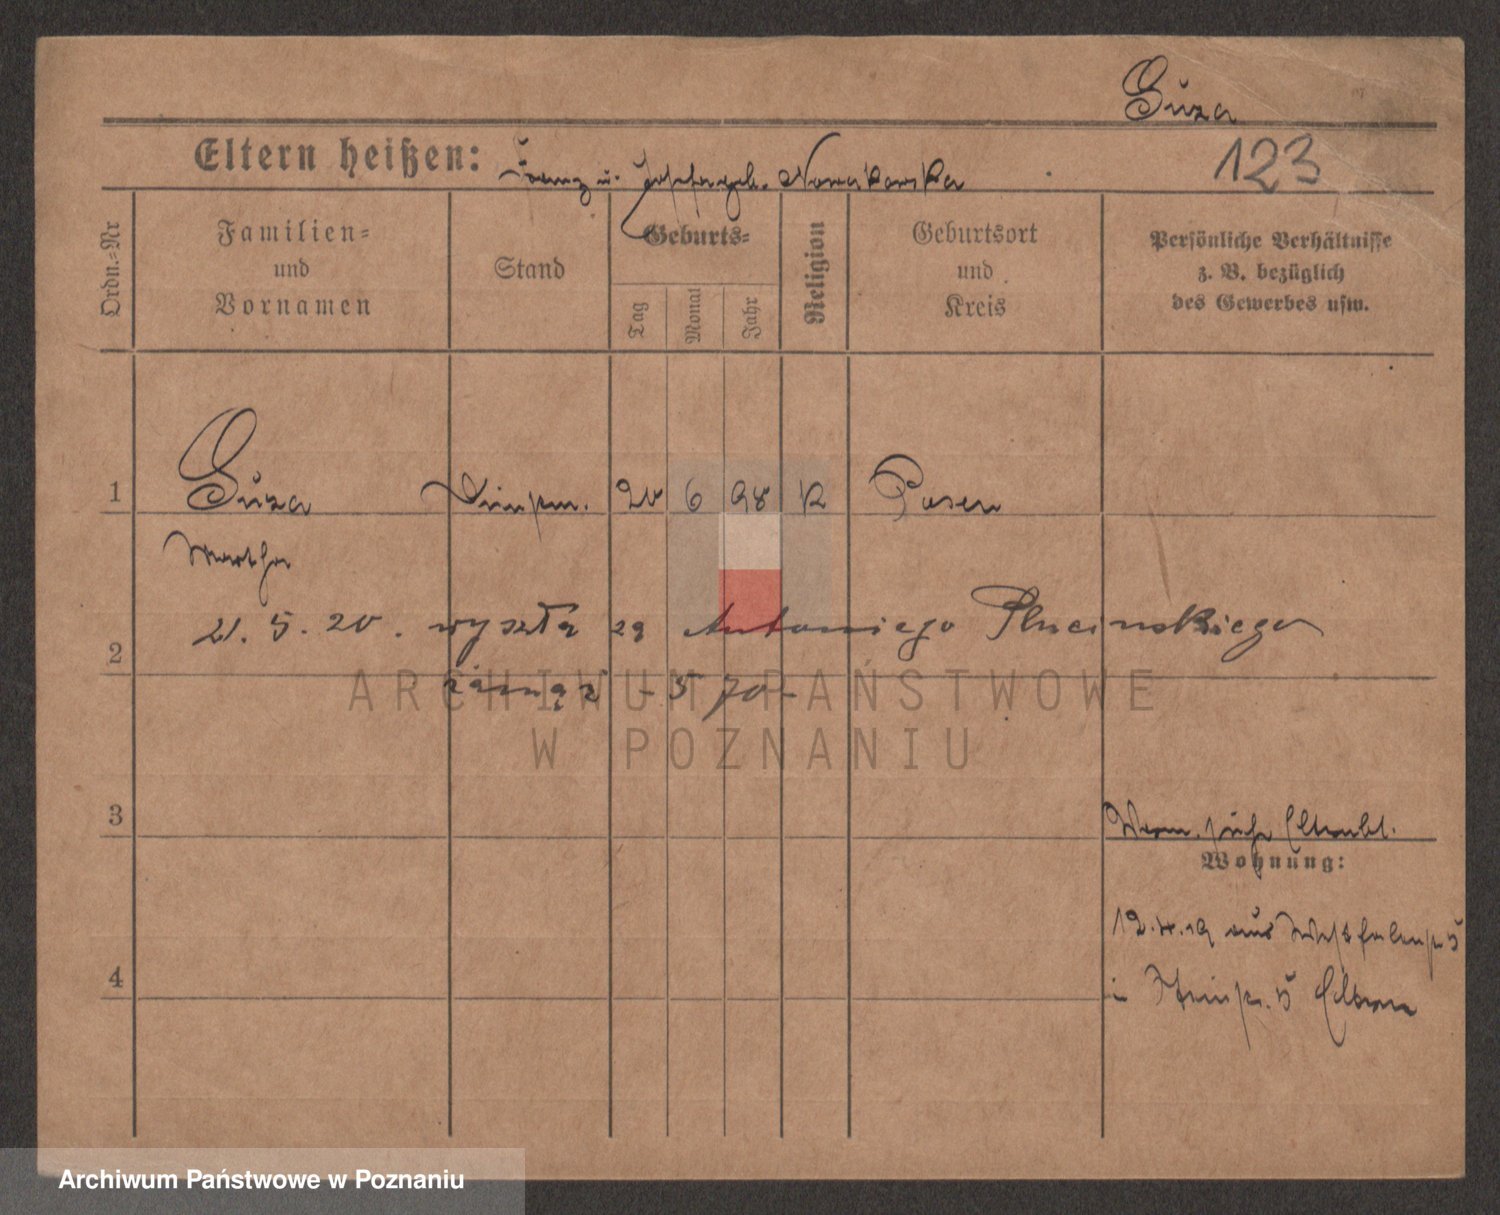 Guza
Eltern heißen: Franz u. Josefa geb. Nowakowska
123
Ordn.-Nr
Familien-
und
Vornamen
Stand
Geburts-
Tag
Monat
Jahr
Religion
Geburtsort
und
Kreis
Persönliche Verhältnisse
z. B. bezüglich
des Gewerbes usw.
1 Guza 20 6 98 K Posen
Martha
21. 5. 20. wyszła za Antoniego Plucinskiego
2
zamąż - 5 70 -
ARCHIWUM PAŃSTWOWE
W POZNANIU
3
Verm. siehe
Wohnung:
12.4.19 aus
4
in Eltern
Archiwum Państwowe w Poznaniu